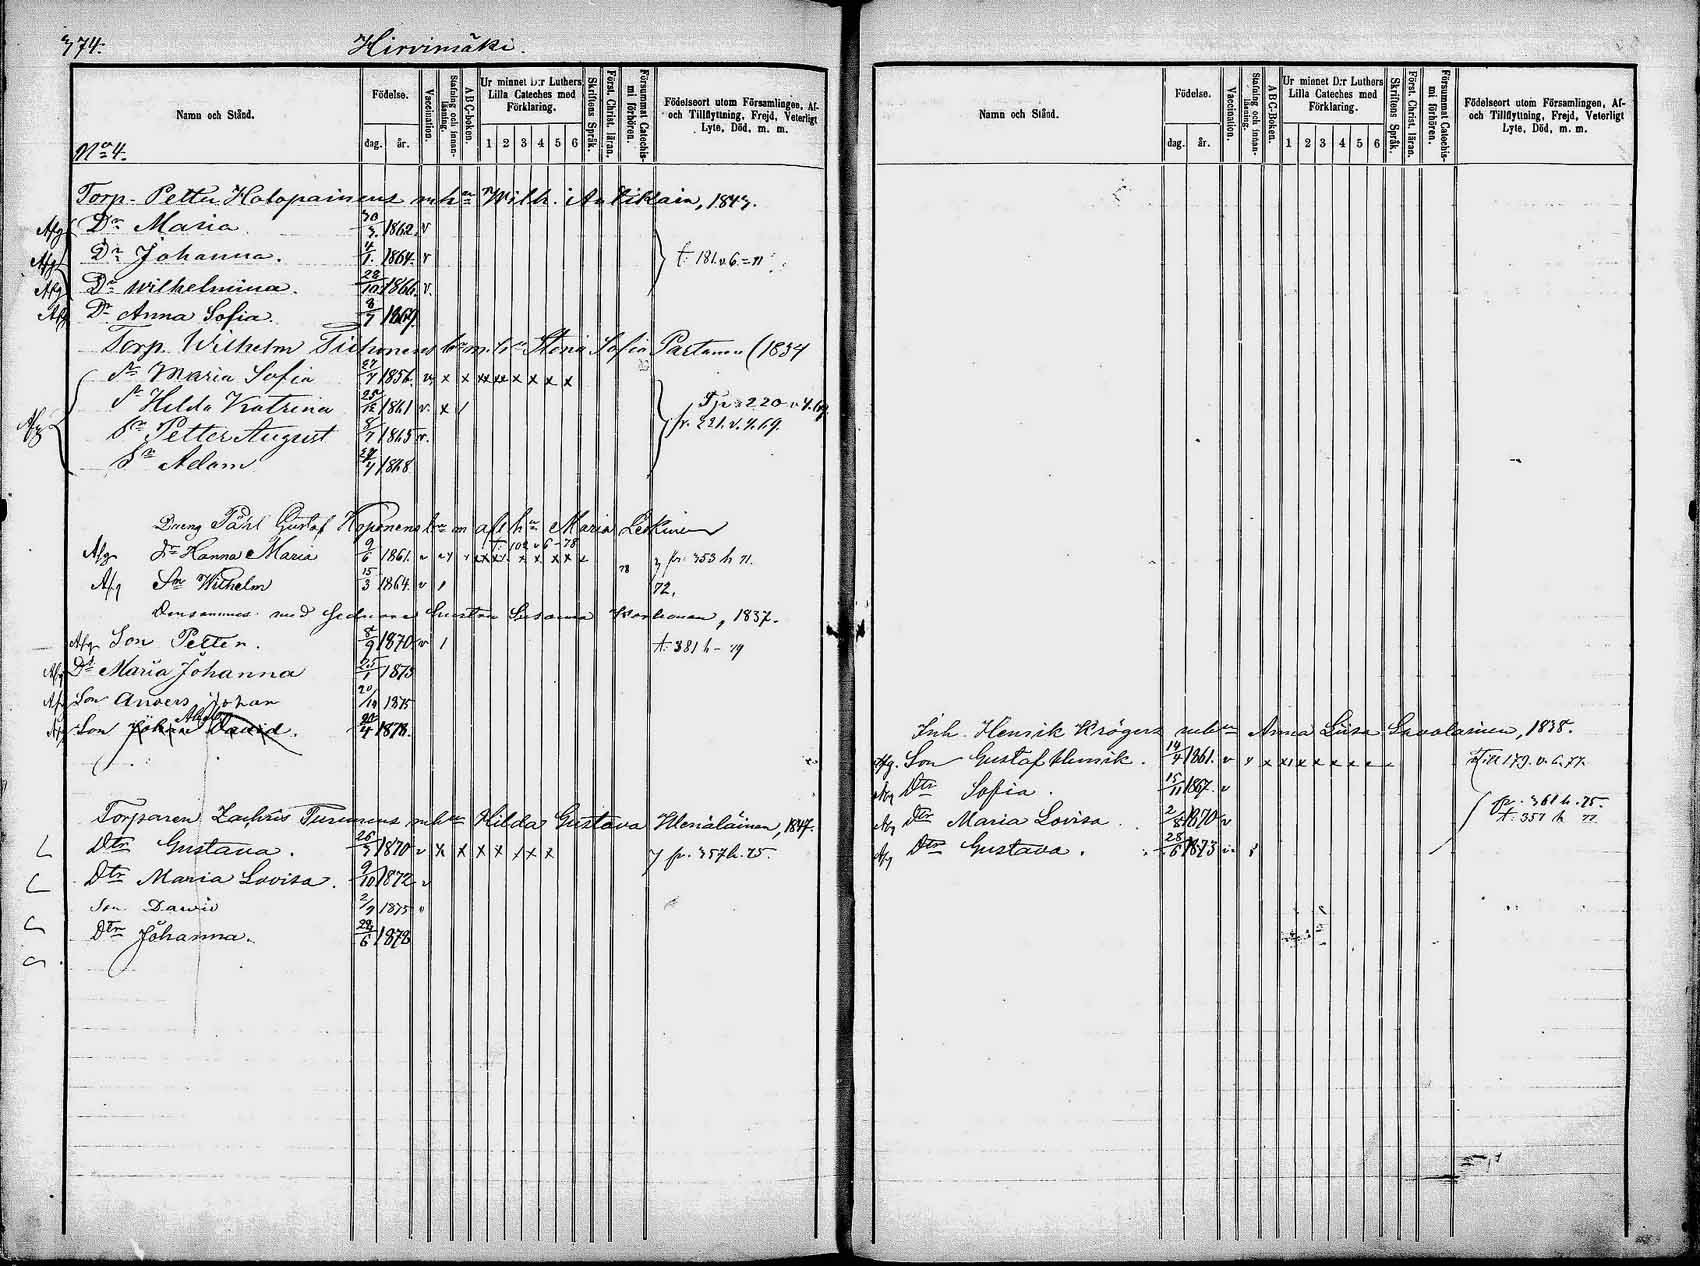 374.
Hirvimäki.
Namn och Stånd.
Födelse.
dag. år.
Vaccination.
Stafning och innan-läsning.
A B C-boken.
Ur minnet D:r Luthers Lilla Cateches med Förklaring.
1 2 3 4 5 6
Skriftens Språk.
Först. Christ. läran.
Försummat Catechis-mi förhören.
Födelseort utom Församlingen, Af- och Tillflyttning, Frejd, Veterligt Lyte, Död, m. m.
No 4.
Torp. Petter Holopainens m hu Wilh. Antikain, 1843.
Afg Dr Maria 30/3 1862. v
Afg Dr Johanna. 4/1 1864. v t. 181 v. 6 = 71
Afg Dr Wilhelmina. 28/10 1866. v.
Afg Dr Anna Sofia. 8/7 1869.
Torp. Wilhelm Tiihonens bn m. hu Stina Sofia Partanen (1834
Dr Maria Sofia 27/7 1856. v x x xx xx x x x x
Dr Hilda Katrina 25/12 1861 v. x / 220 v. 4. 69
Afg Sn Petter August 8/7 1865 v. fr. 221. v. 4. 69.
Sn Adam 27/7 1868
Dreng Påhl Gustaf Koponens bn m afl hu Maria Leskinen
t. 102 v 6 - 78
Afg Dr Hanna Maria 9/6 1861. v fr. 353 h 71.
78
Afg Sn Wilhelm 15/3 1864. v / 72.
Densammes med sednare hustru Susanna Korhonen, 1837.
Afg Son Petter. 8/9 1870 v / t. 381 h - 79
Afg Dr Maria Johanna 25/1 1873
Afg Son Anders Johan 20/10 1875
Afg Son Johan David. Abel 4 1878.
Torparen Zachris Turunens m hu Hilda Gustava Heneläinen, 1847.
Dtr Gustava. 26/3 1870 v x x x x / x x fr. 357 h. 75.
Dtr Maria Lovisa. 9/10 1872 v
Son Dawid 2/7 1875 v
Dtr Johanna. 6 1878
Namn och Stånd.
Födelse.
dag. år.
Vaccination.
Stafning och innan-läsning.
A B C-Boken.
Ur minnet D:r Luthers Lilla Cateches med Förklaring.
1 2 3 4 5 6
Skriftens Språk.
Först. Christ. läran.
Försummat Catechis-mi förhören.
Födelseort utom Församlingen, Af- och Tillflyttning, Frejd, Veterligt Lyte, Död, m. m.
Inh. Henrik Krögers m hu Anna Liisa Savolainen, 1838.
Afg. Son Gustaf Henrik. 14/4 1861. v till 179. v. 6. 77.
Afg Dtr Sofia. 15/11 1867. v
Afg Dtr Maria Lovisa. 2/8 1870 v fr. 361 h. 75. t. 351 h 77
Afg Dtr Gustava. 28/6 1873 v.